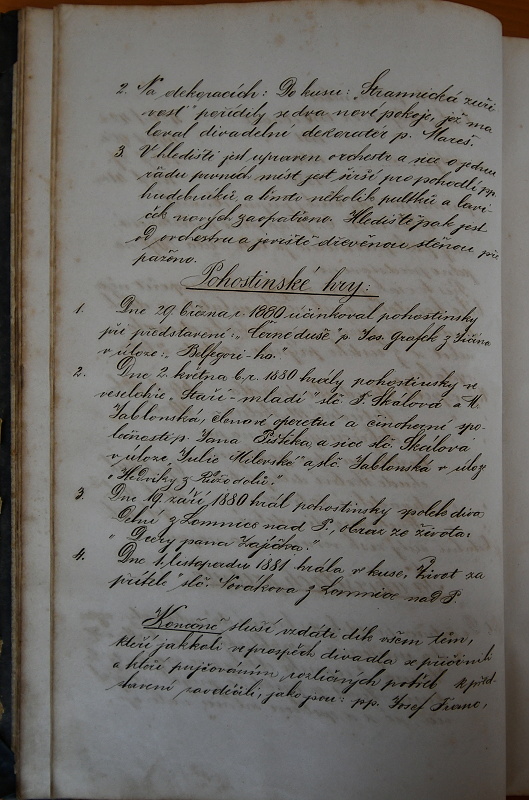 2. Na dekoracích: Do kusu: „Strannická zuři
vost" pořídily se dva nové pokoje, jež ma
loval divadelní dekoratér p. Mareš.
3. V hledišti jest upraven orchestr a sice o jednu
řadu prvních míst jest širší pro pohodlí pp.
hudebníků a tímto několik pultků a lavi-
ček nových zaopatřeno. Hlediště pak jest
od orchestru a jeviště dřevěnou stěnou pře
paženo.
Pohostinské hry:
1. Dne 29. března r. 1880 účinkoval pohostinsky
při představení: „Černé duše" p. Jos. Grafek z Jičína
v úloze: „Belfegori-ho."
2. Dne 2. května t. r. 1880 hrály pohostinsky ve
veselohře „Staří-mladí" slč. F. Skálová a M.
Jablonská, členové operetní a činoherní spo-
lečnosti p. Jana Pištěka, a sice slč. Skálova
v úloze Julie a slč. Jablonská v úloze
„Hedviky z Růžodolic."
3. Dne 19. září 1880 hrál pohostinsky spolek diva
delní z Lomnice nad P., obraz ze života:
„Dcery pana Zajíčka."
4. Dne 1. listopadu 1881 hrála v kuse „Život za
přítele" slč. Novákova z Lomnice nad P.
Konečně sluší vzdáti dík všem těm,
kteří jakkoli ve prospěch divadla se přičinili
a kteří pujčováním rozličných potřeb k před-
stavení zavděčili, jako jsou: pp. Josef